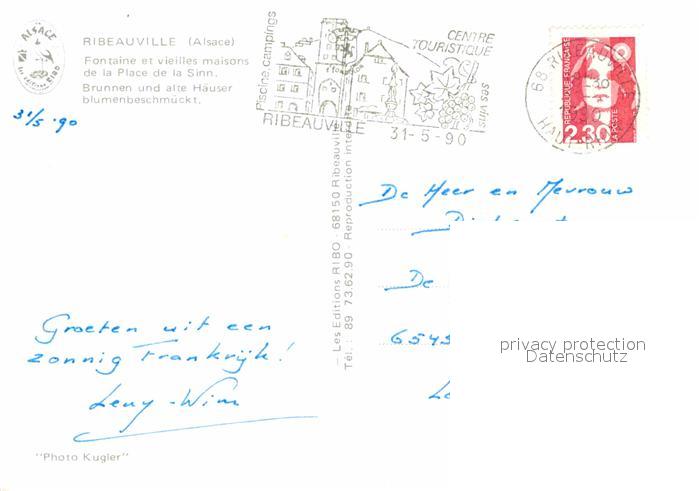 ALSACE
RIBEAUVILLE (Alsace)
Fontaine et vieilles maisons
de la Place de la Sinn.
Brunnen und alte Häuser
blumenbeschmückt.
31/5 '90
Piscine, campings
CENTRE
TOURISTIQUE
ses vins
RIBEAUVILLE
31-5-90
68 RIBEAUVILLE
HAUT-RHIN
RÉPUBLIQUE FRANÇAISE
2,30
LA POSTE
Les Editions RIBO - 68150 Ribeauville - Reproduction
Tél.: 89 73.62.90
De Heer en Mevrouw
De
6543
privacy protection
Datenschutz
Groeten uit een
zonnig Frankrijk!
Leny - Wim
"Photo Kugler"